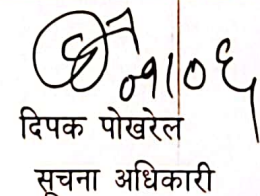 ०१।०६
दिपक पोखरेल
सूचना अधिकारी